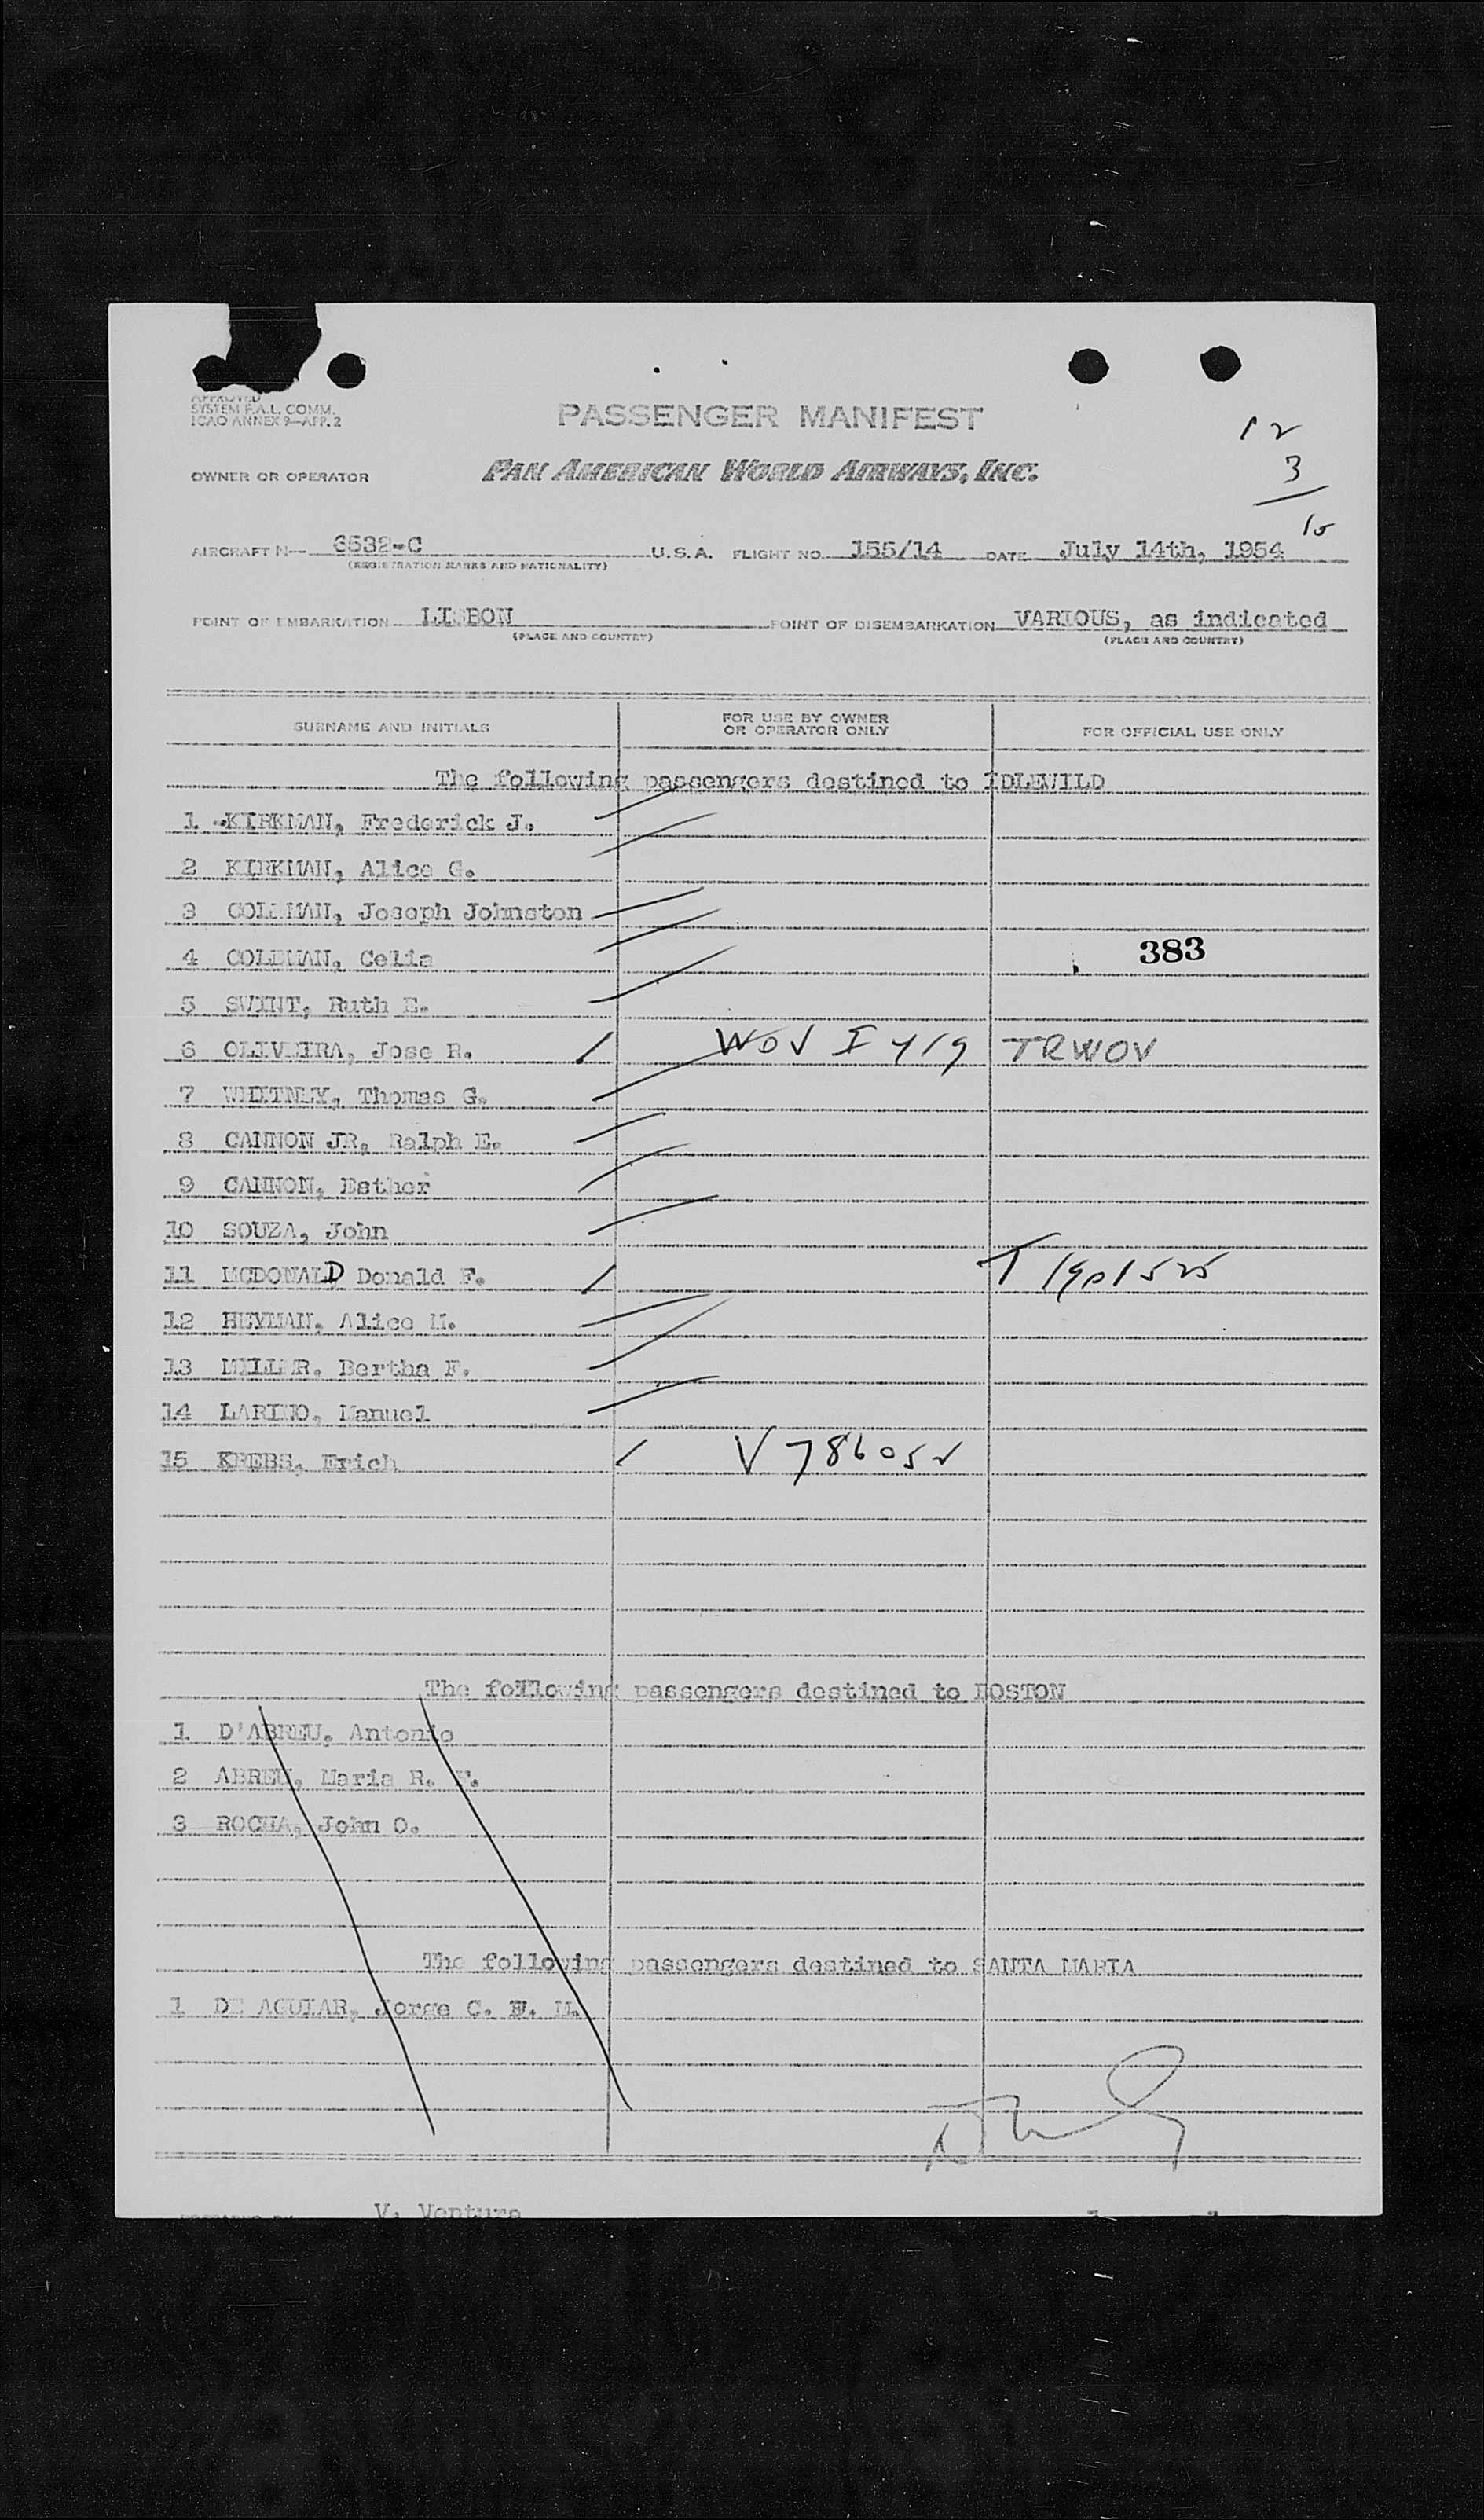 APPROVED
SYSTEM F.A.L. COMM.
ICAO ANNEX 9—APP. 2
PASSENGER MANIFEST
12
3
15
OWNER OR OPERATOR PAN AMERICAN WORLD AIRWAYS, INC.
AIRCRAFT N— 6532-C U.S.A. FLIGHT NO. 155/14 DATE July 14th, 1954
(REGISTRATION MARKS AND NATIONALITY)
POINT OF EMBARKATION LISBON POINT OF DISEMBARKATION VARIOUS, as indicated
(PLACE AND COUNTRY) (PLACE AND COUNTRY)
SURNAME AND INITIALS FOR USE BY OWNER OR OPERATOR ONLY FOR OFFICIAL USE ONLY
The following passengers destined to IDLEWILD
1 KIRKMAN, Frederick J.
2 KIRKMAN, Alice G.
3 COLEMAN, Joseph Johnston
4 COLEMAN, Celia 383
5 SWINT, Ruth E.
6 OLIVEIRA, Jose R. WOV I 419 TRWOV
7 WHITNEY, Thomas G.
8 CANNON JR, Ralph E.
9 CANNON, Esther
10 SOUZA, John
11 MCDONALD Donald F. T 1901525
12 HEYMAN, Alice M.
13 MILLER, Bertha F.
14 LARINO, Manuel
15 KREBS, Erich V 786052
The following passengers destined to BOSTON
1 D'ABREU, Antonio
2 ABREU, Maria R. F.
3 ROCHA, John O.
The following passengers destined to SANTA MARIA
1 DE AGUIAR, Jorge C. F. M.
PREPARED BY V. Ventura